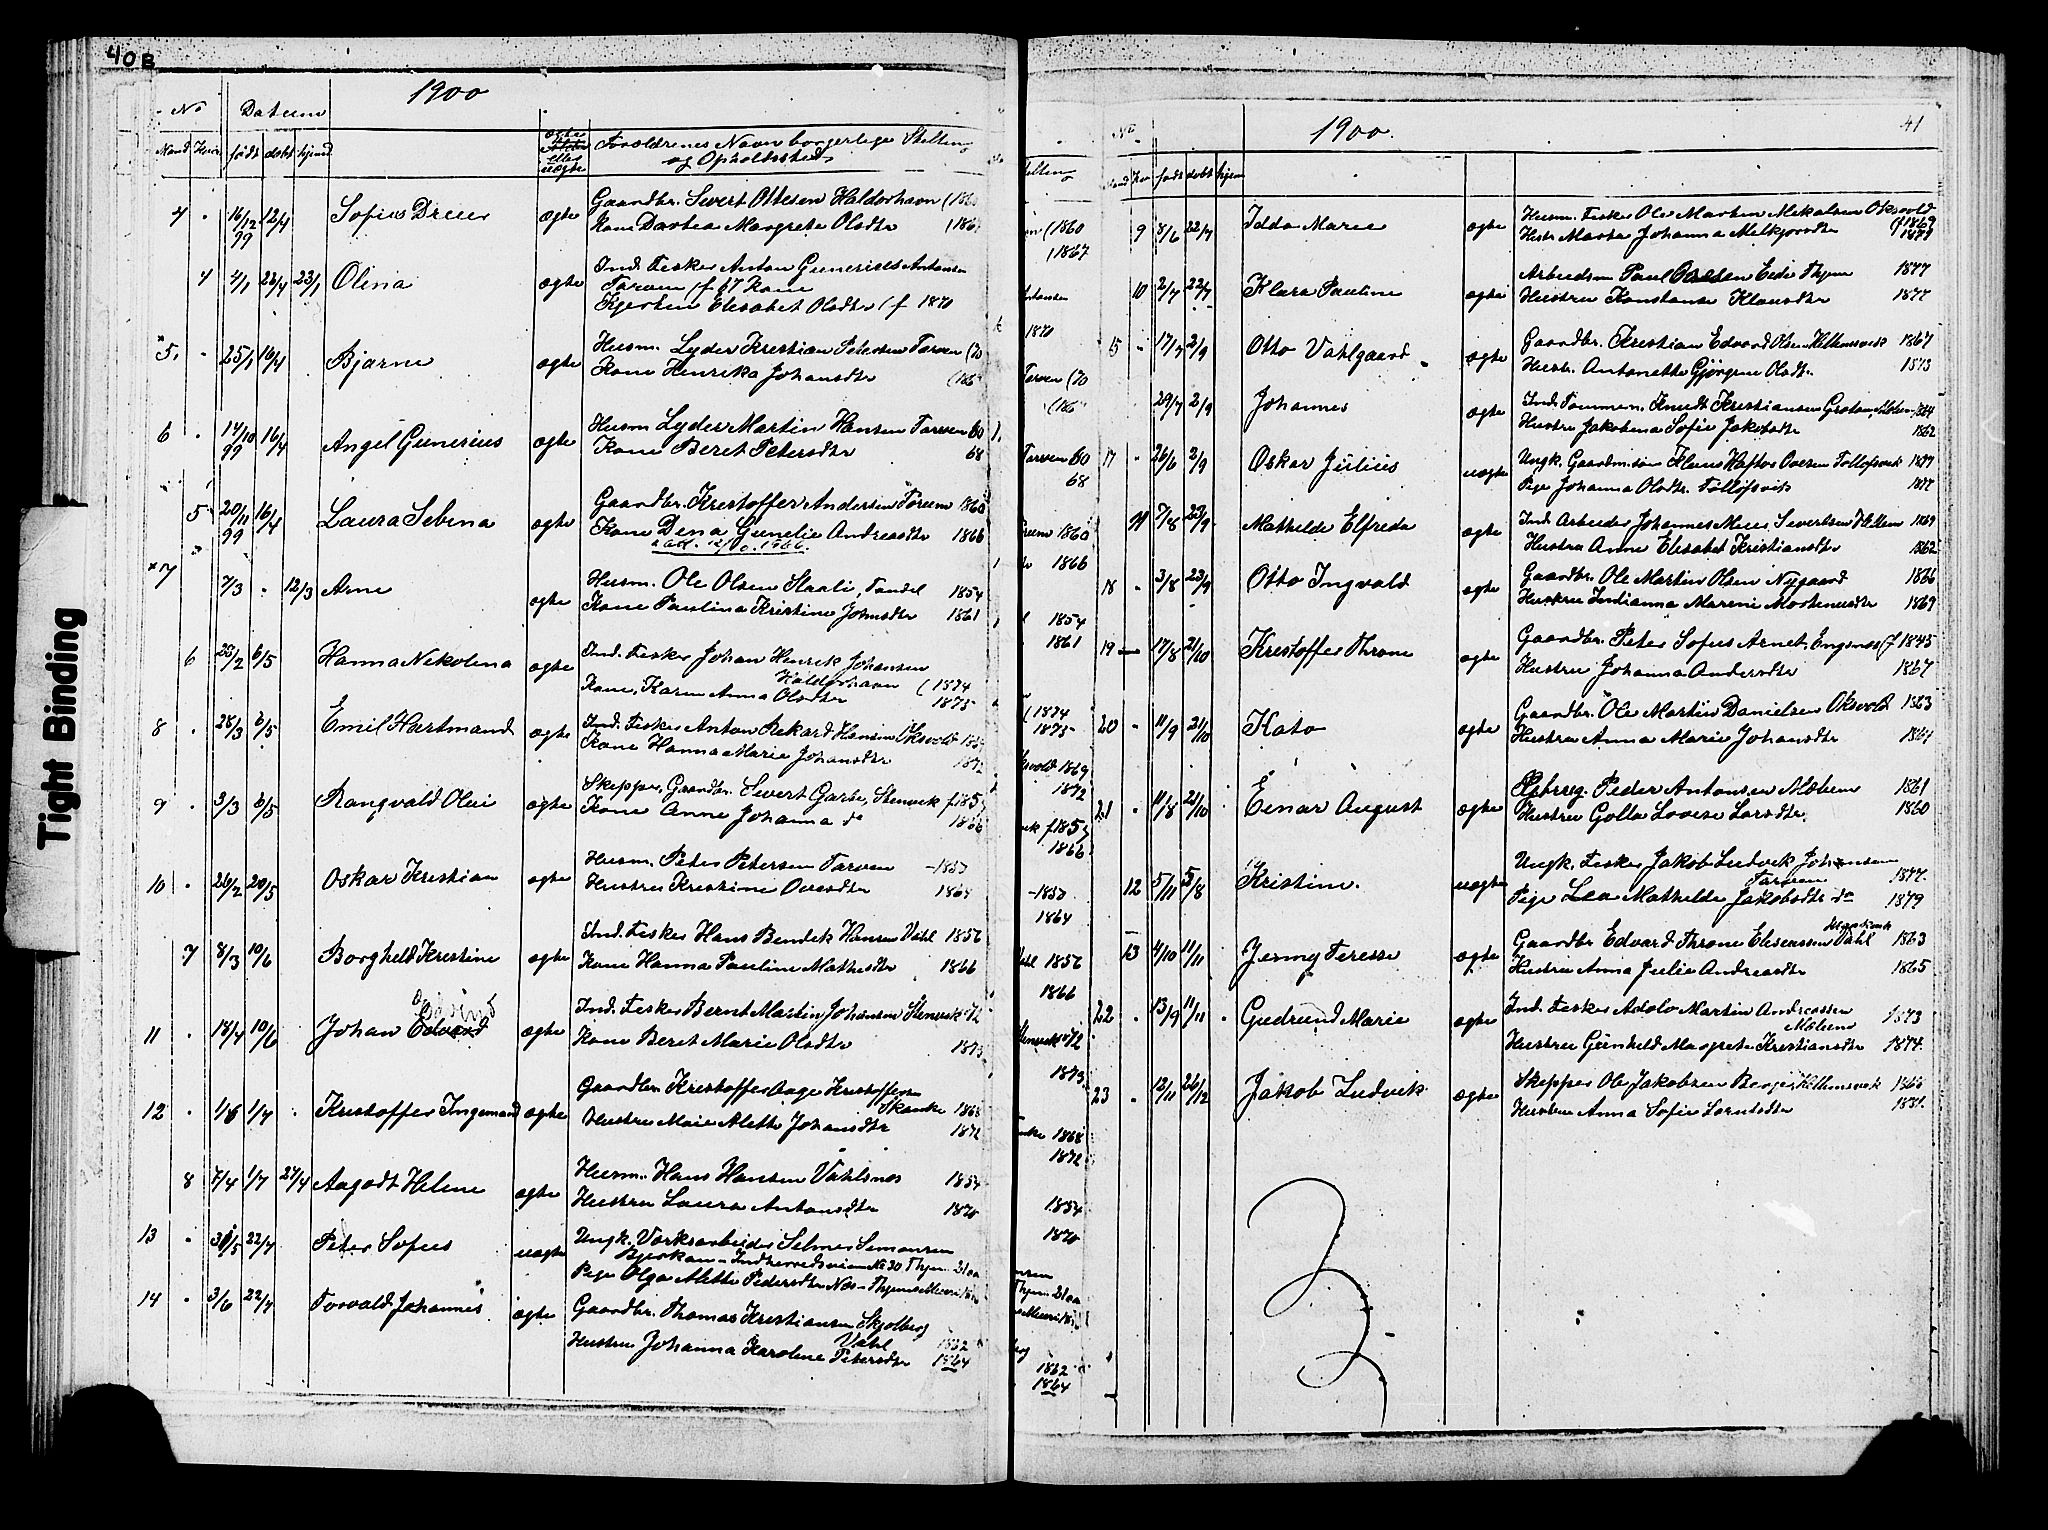 40B
1900
No Datum
Mand Kvin født døbt hjemd
ægte eller uægte
Foreldrenes Navn borgerlige Stilling
og Opholdssted
4 16/12 99 12/4 Sofius Dreier ægte Gaardbr. Sivert Ottesen Haldorhavn
Kone Dorthea Margrete Olsdtr
4 4/1 23/1 Olina ægte Ind. Fisker Anton Gunerius Antonsen
Tarven (f 67 Kone
Kjersten Elesabet Olsdtr (f 1870
5 25/1 16/4 Bjarne ægte Husm. Lyder Kristian Petersen Tarven (70
Kone Henrika Johansdtr
6 14/10 99 16/4 Angel Gunerius ægte Husm Lyder Martin Hansen Tarven 60
Kone Beret Petersdtr 68
5 20/11 99 16/4 Laura Sebina ægte Gaardbr. Krestoffer Andersen Foreum 1860
Kone Dena Gunelie Andreasdtr 1866
7 7/3 12/3 Arne ægte Husm. Ole Olsen Staali, Tandel 1854
Kone Paulina Kristine Johnsdtr 1861
6 6/5 Hanna Nikolena ægte Ind. Fisker Johan Henrik Johansen
Haldorhavn (1874
Kone, Karen Anna Olsdtr 1875
8 28/3 6/5 Emil Hartmand ægte Ind. Fisker Anton Rekard Hansen Oksvold 1869
Kone Hanna Marie Johansdtr 1872
9 3/3 6/5 Rangvald Olai ægte Skipper, Gaardbr. Sivert Garber, Stenvik
Kone Anne Johanna do 1866
10 26/2 20/5 Oskar Kristian ægte Husm. Peter Petersen Tarven
Hustru Kristine Ovesdtr 1864
7 8/3 10/6 Borghild Kristine ægte Ind. Fisker Hans Bendek Hansen Vahl 1856
Kone Hanna Pauline Mathisdtr 1866
11 18/4 10/6 Johan Edvard ægte Ind. Fisker Bernt Martin Johansen Stenvik 72
Kone Beret Marie Olsdtr 1873
12 1/7 Kristoffer Ingemand ægte Gaardbr. Kristoffer Aage Kristoffersen
Skanke 1868
Hustru Maie Alette Johansdtr 1872
8 7/4 1/7 27/4 Aagodt Helene ægte Husm. Hans Hansen Vahlsnes 1854
Hustru Laura Antonsdtr 1870
13 22/7 Peter Sofus uægte Ungk. Værksarbeider Selmer Simonsen
Bjerkan - Indherredsveien No 30 Thjem 21 aar
Pige Olga Alette Pedersdtr
14 3/6 22/7 Torvald Johannes ægte Gaardbr. Thomas Kristiansen Skjolberg
Vahl 1862
Hustru Johanna Karoline Petersdtr 1864
41
1900
No
født døbt hjem
9 8/6 22/7 Idda Marie ægte Husm. Fisker Ole Morten Mikalsen Oksvold
Hustr. Marta Johanna Melkjorsdtr
10 2/7 22/7 Klara Pauline ægte Arbeidsm Paul Olsen Eide Thjem 1877
Hustru Konstanse Klausdtr 1877
15 17/7 2/9 Otto Vahlgaard ægte Gaardbr. Kristian Edvard Olsen Hellemsvik 1867
Hustr. Antonette Gjørgine Olsdtr. 1873
29/7 2/9 Johannes ægte Ind. Tømmerm. Knudt Kristiansen
Hustru Jakobina Sofie Jakobsdtr 1862
17 26/6 2/9 Oskar Julius uægte Ungk. Gaardm.søn Klaus Haftor Ovesen Follofsvik 1877
Pige Johanna Olsdtr. Tollofsvik 1877
11 7/8 23/9 Mathilde Elfrida ægte Ind. Arbeider Johannes Meier Sivertsen Hellem 1869
Hustru Anne Elisabet Kristiansdtr 1862
18 3/8 23/9 Otto Ingvald ægte Gaardbr. Ole Martin Olsen Nygaard 1866
Hustru Indianna Mareni Mortensdtr 1869
19 17/8 21/10 Krestoffer Throne ægte Gaardbr. Peter Sofus Arnet, Engsnes (f 1845
Hustru Johanna Andersdtr 1867
20 11/9 21/10 Kato ægte Gaardbr. Ole Martin Danielsen Oksvold 1863
Hustru Anna Marie Johansdtr 1861
21 11/8 21/10 Einar August ægte Peder Antonsen Mælum 1861
Hustru Golla Lovise Larsdtr. 1860
12 5/11 5/8 Kristine. uægte Ungk. Fisker Jakob Ludvik Johansen
Tarven 1877.
Pige Lea Mathilde Jakobsdtr do 1879
13 4/10 11/11 Jenny Teresse ægte Gaardbr Edvard Throne Eliseussen Vahl 1863
Hustru Anna Julie Andreasdtr 1865
22 13/9 11/11 Gudrund Marie ægte Ind. Fisker Adolv Martin Andreassen
Mælum 1873
Hustru Gunhild Margrete Kristiansdtr 1874.
23 12/11 26/12 Jakob Ludvik ægte Skipper Ole Jakobsen Berge Hellemsvik
Hustru Anna Sofie Larntsdtr
Tight Binding